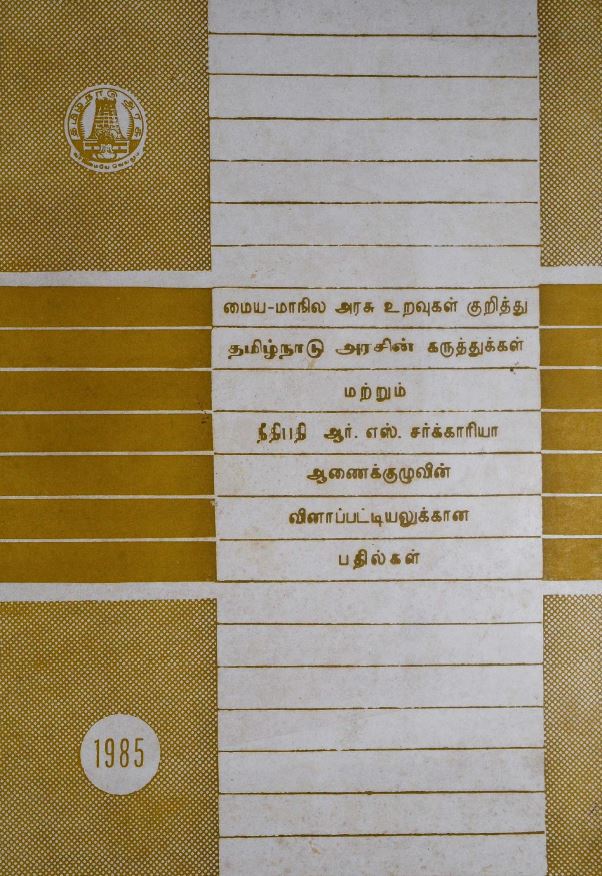 தமிழ்நாடு அரசு
வாய்மையே வெல்லும்
மைய-மாநில அரசு உறவுகள் குறித்து
தமிழ்நாடு அரசின் கருத்துக்கள்
மற்றும்
நீதிபதி ஆர். எஸ். சர்க்காரியா
ஆணைக்குழுவின்
வினாப்பட்டியலுக்கான
பதில்கள்
1985